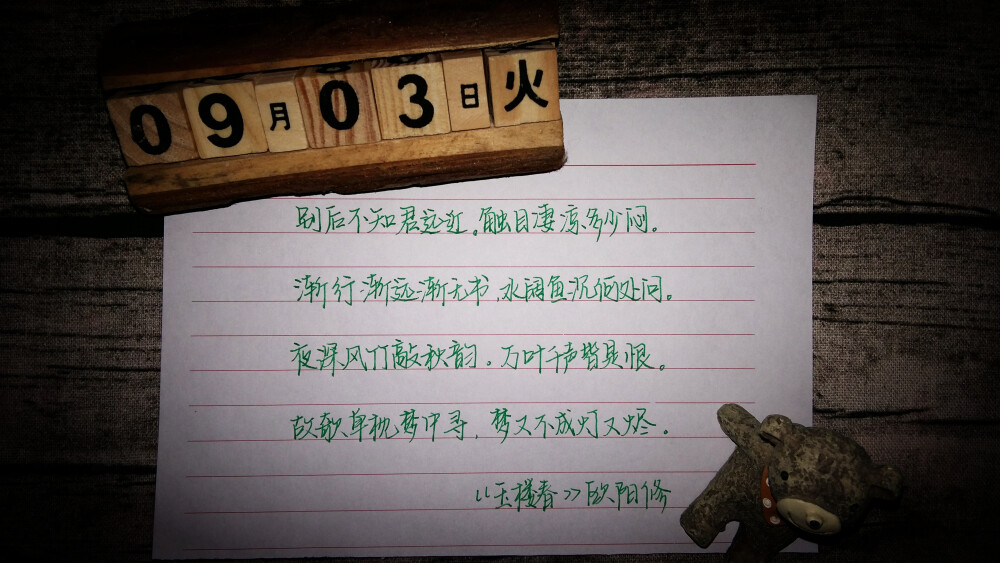 09月03日火
别后不知君远近。触目凄凉多少闷。
渐行渐远渐无书，水阔鱼沉何处问。
夜深风竹敲秋韵。万叶千声皆是恨。
故欹单枕梦中寻，梦又不成灯又烬。
《玉楼春》欧阳修